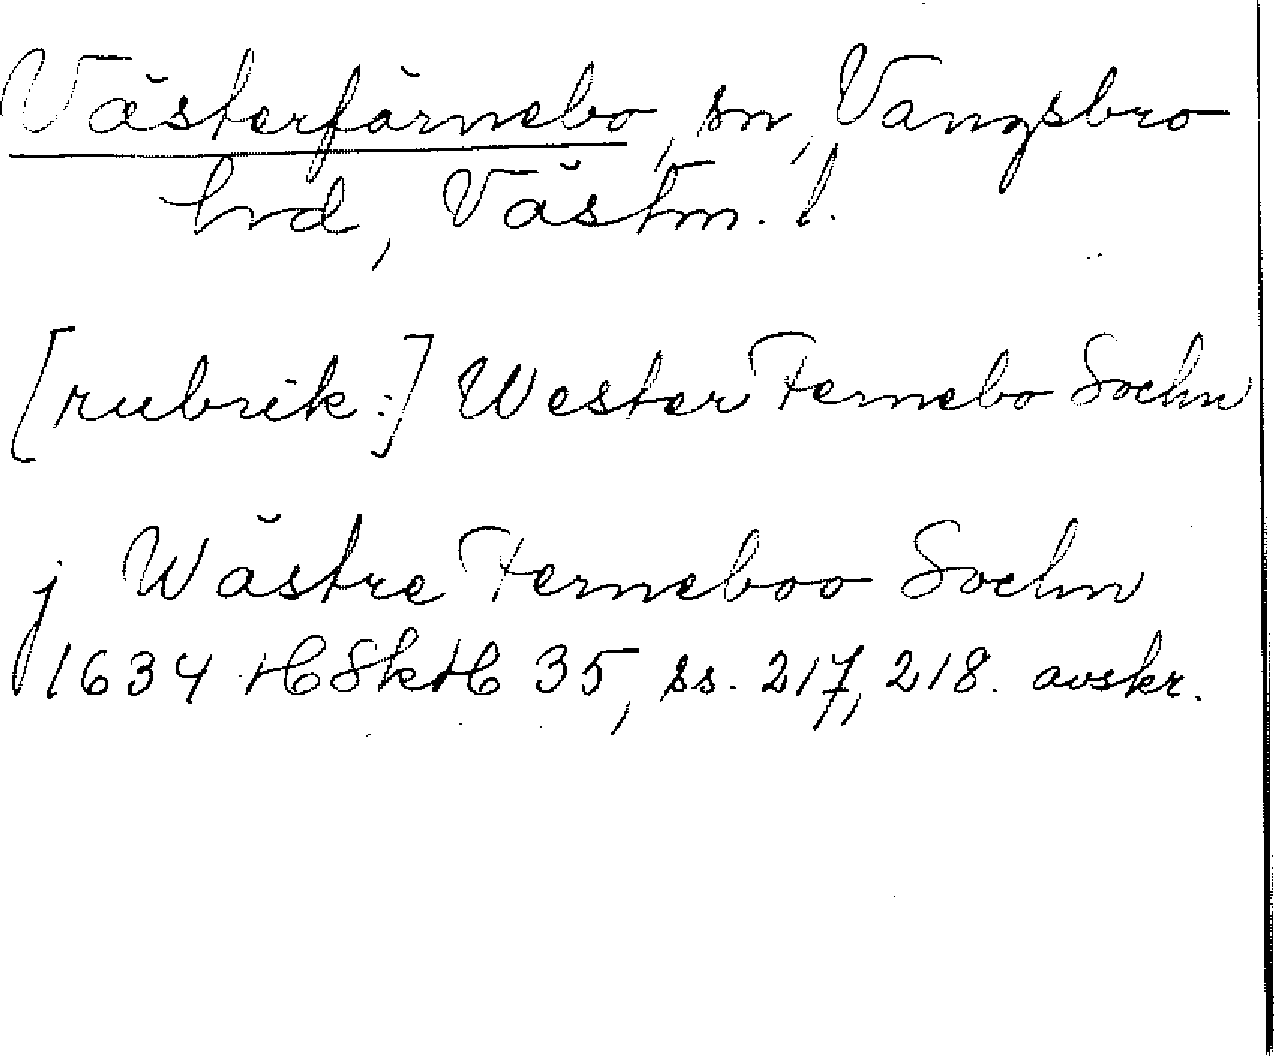 Västerfärnebo, sn, Vangsbro
hrd, Västm. l.
[rubrik:] Wester Fernebo Sochn
j WästreFerneboo Sochn
1634 HSkH 35, ss. 217, 218. avskr.